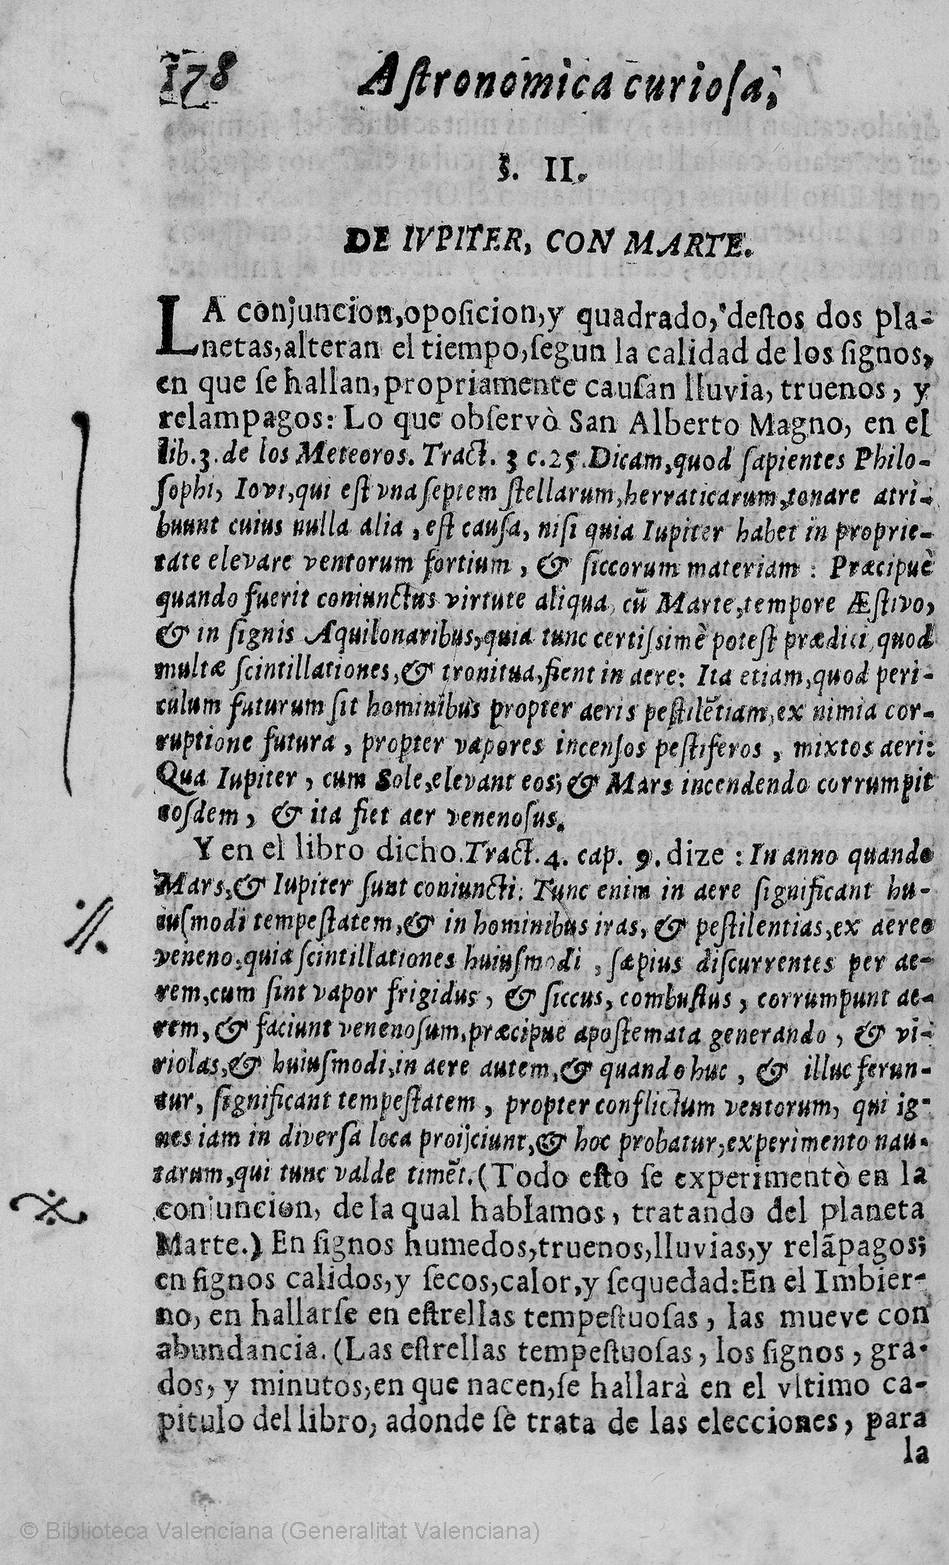 178 Astronomica curiosa,
§. II.
DE IVPITER, CON MARTE.
LA conjuncion, oposicion, y quadrado, destos dos pla-
netas, alteran el tiempo, segun la calidad de los signos,
en que se hallan, propriamente causan lluvia, truenos, y
relampagos: Lo que observò San Alberto Magno, en el
lib. 3. de los Meteoros. Tract. 3 c. 25. Dicam, quod sapientes Philo-
sophi, Iovi, qui est vna septem stellarum, herraticarum, tonare atri-
buunt cuius nulla alia, est causa, nisi quia Iupiter habet in proprie-
tate elevare ventorum fortium, & siccorum materiam: Præcipuè
quando fuerit coniunctus virtute aliqua, cū Marte, tempore Æstivo,
& in signis Aquilonaribus, quia tunc certissimè potest prædici, quod
multæ scintillationes, & tronitua, fient in aere: Ita etiam, quod peri-
culum futurum sit hominibus propter aeris pestilētiam, ex nimia cor-
ruptione futura, propter vapores incensos pestiferos, mixtos aeri:
Qua Iupiter, cum Sole, elevant eos; & Mars incendendo corrumpit
eosdem, & ita fiet aer venenosus.
Y en el libro dicho. Tract. 4. cap. 9. dize: In anno quando
Mars, & Iupiter sunt coniuncti: Tunc enim in aere significant hu-
iusmodi tempestatem, & in hominibus iras, & pestilentias, ex aereo
veneno, quia scintillationes huiusmodi, sæpius discurrentes per ae-
rem, cum sint vapor frigidus, & siccus, combustus, corrumpunt ae-
rem, & faciunt venenosum, præcipue apostemata generando, & vi-
riolas, & huiusmodi, in aere autem, & quando huc, & illuc ferun-
tur, significant tempestatem, propter conflictum ventorum, qui ig-
nes iam in diversa loca proijciunt, & hoc probatur, experimento nau-
tarum, qui tunc valde timēt. (Todo esto se experimentò en la
conjuncion, de la qual hablamos, tratando del planeta
Marte.) En signos humedos, truenos, lluvias, y relāpagos;
en signos calidos, y secos, calor, y sequedad: En el Imbier-
no, en hallarse en estrellas tempestuosas, las mueve con
abundancia. (Las estrellas tempestuosas, los signos, gra-
dos, y minutos, en que nacen, se hallarà en el vltimo ca-
pitulo del libro, adonde se trata de las elecciones, para
la
© Biblioteca Valenciana (Generalitat Valenciana)